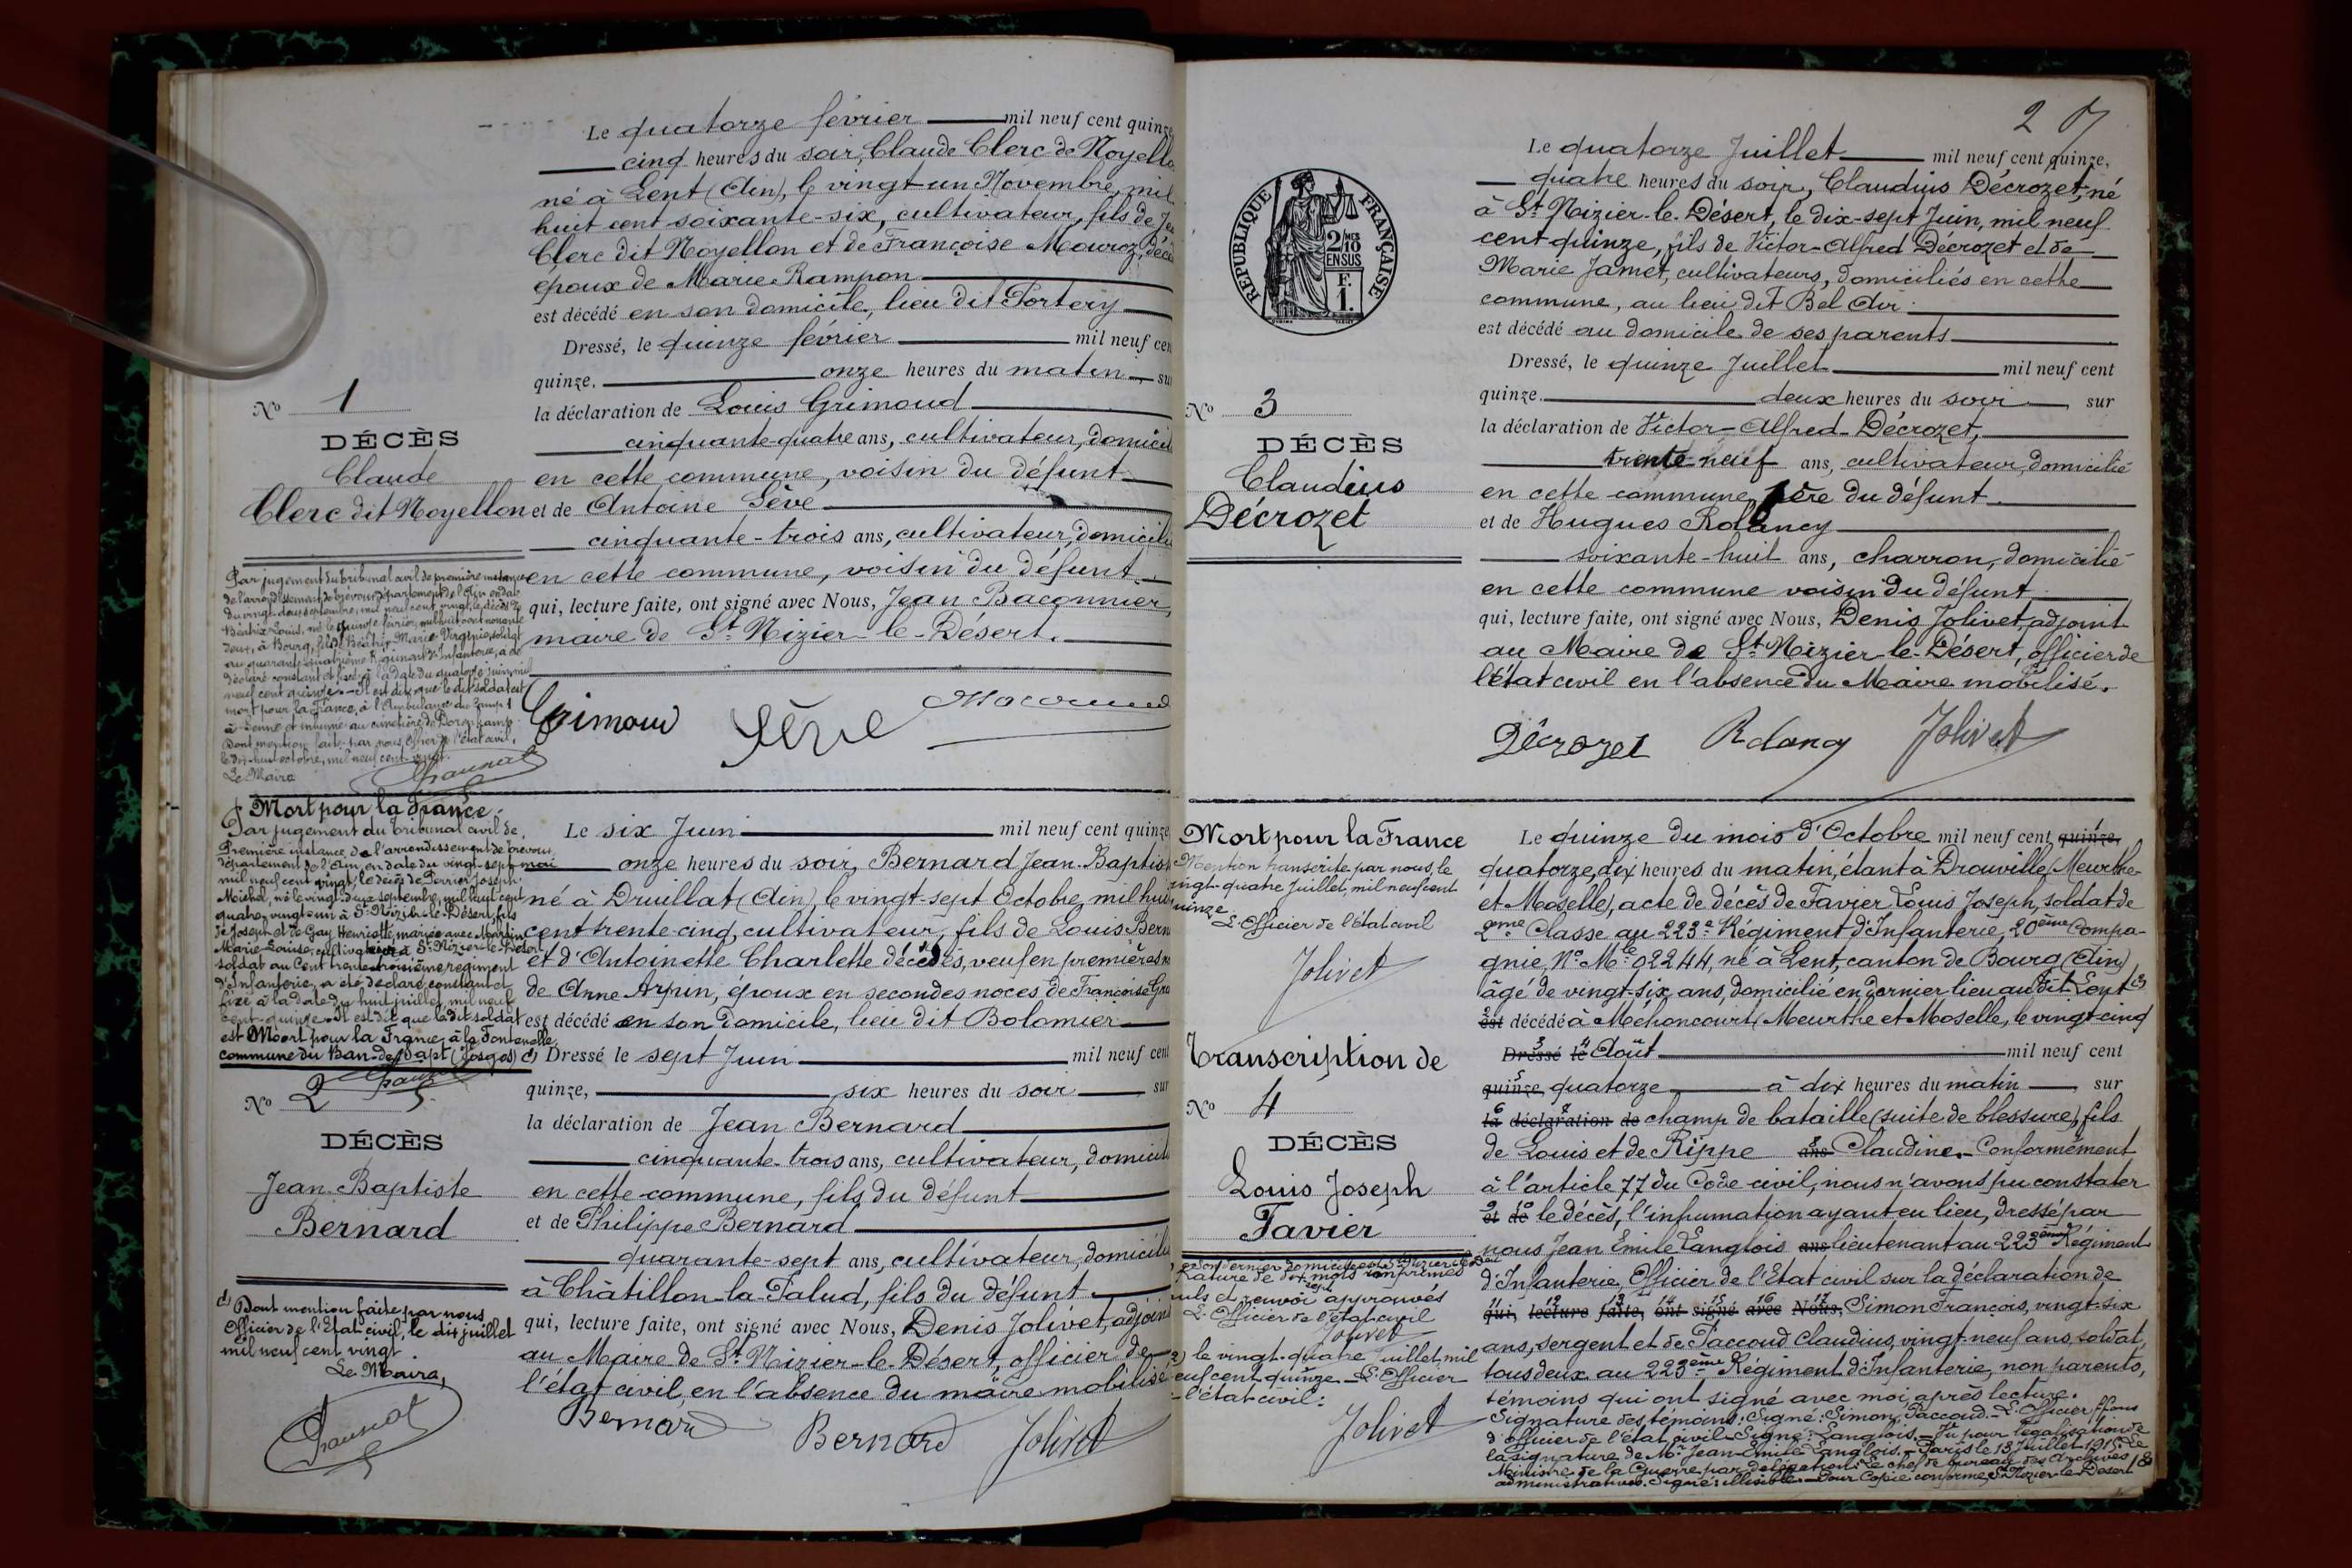 Le quatorze février mil neuf cent quinze
cinq heures du soir, Claude Clerc dit Noyello
né à Lent (Ain), le vingt-un Novembre, mil
huit cent soixante-six, cultivateur, fils de Je
Clerc dit Noyellon et de Françoise Mouroz, décé
époux de Marie Rampon
est décédé en son domicile, lieu dit
Dressé, le quinze février mil neuf cen
quinze, onze heures du matin su
No 1
la déclaration de Louis Grimoud
DÉCÈS
cinquante-quatre ans, cultivateur, domicili
Claude
en cette commune, voisin du défunt
Clerc dit Noyellon
et de Antoine Sève
cinquante-trois ans, cultivateur, domicilié
en cette commune, voisin du défunt
qui, lecture faite, ont signé avec Nous, Jean Baconnier,
maire de St Nizier-le-Désert.
Par jugement du tribunal civil de première instance
de l'arrondissement de Trévoux, département de l'Ain en date
du vingt-deux septembre, mil neuf cent vingt, le décès de
Béatrix Louis, né le quinze février, mil huit cent nonante
deux, à Bourg, fils de Béatrix Marie Virginie, soldat
au quarante quatrième Régiment d'Infanterie, a été
déclaré constant et fixé à la date du quatorze juin mil
neuf cent quinze. Il est dit que le dit soldat est
mort pour la France, à l'Ambulance du
et inhumé au cimetière de
Dont mention faite par nous, Officier de l'état civil,
le dix-huit octobre, mil neuf cent vingt.
Le Maire
Grimoud Sève
Mort pour la France
Par jugement du tribunal civil de
Première instance de l'arrondissement de Trévoux,
département de l'Ain, en date du vingt-sept mai
mil neuf cent vingt, le décès de Perrier Joseph
Michel, né le vingt-deux septembre, mil huit cent
quatre-vingt-un à St Nizier-le-Désert, fils
de Joseph et de Gay Henriette, marié avec Martin
Marie-Louise, cultivateur à St Nizier-le-Désert
soldat au Cent trente troisième régiment
d'Infanterie, a été déclaré constant et
fixé à la date du huit juillet, mil neuf
cent quinze. Il est dit que le dit soldat
est Mort pour la France, à la Fontenelle,
commune du Ban-de-Sapt (Vosges) (1)
Le six Juin mil neuf cent quinze
onze heures du soir, Bernard Jean-Baptist
né à Druillat (Ain), le vingt-sept Octobre, mil huit
cent trente-cinq, cultivateur, fils de Louis Bern
et d'Antoinette Charlette décédés, veuf en premières n
de Anne Arpin, époux en secondes noces de Françoise Gro
est décédé en son domicile, lieu dit Bolomier
Dressé le sept Juin mil neuf cent
No 2
quinze, six heures du soir sur
la déclaration de Jean Bernard
DÉCÈS
cinquante-trois ans, cultivateur, domicili
Jean Baptiste
en cette commune, fils du défunt
Bernard
et de Philippe Bernard
quarante-sept ans, cultivateur, domicilié
à Châtillon-la-Palud, fils du défunt
qui, lecture faite, ont signé avec Nous, Denis Jolivet, adjoint
au Maire de St Nizier-le-Désert, officier de
l'état civil, en l'absence du maire mobilisé
(1) Dont mention faite par nous
Officier de l'Etat civil, le dix juillet
mil neuf cent vingt
Le Maire,
Bernard Bernard Jolivet
2
RÉPUBLIQUE FRANÇAISE
2/10 MES EN SUS
F. 1.
Le quatorze Juillet mil neuf cent quinze,
quatre heures du soir, Claudius Décrozet, né
à St Nizier-le-Désert, le dix-sept Juin, mil neuf
cent quinze, fils de Victor-Alfred Décrozet et de
Marie Jamet, cultivateurs, domiciliés en cette
commune, au lieu dit Bel Air
est décédé au domicile de ses parents
Dressé, le quinze Juillet mil neuf cent
quinze. deux heures du soir sur
No 3
la déclaration de Victor-Alfred-Décrozet,
DÉCÈS
trente-neuf ans, cultivateur, domicilié
Claudius
en cette commune, père du défunt
Décrozet
et de Hugues Rolancy
soixante-huit ans, charron, domicilié
en cette commune voisin du défunt
qui, lecture faite, ont signé avec Nous, Denis Jolivet, adjoint
au Maire de St Nizier-le-Désert, officier de
l'état civil en l'absence du Maire mobilisé.
Décrozet Rolancy Jolivet
Mort pour la France
Mention transcrite par nous, le
vingt-quatre Juillet, mil neuf cent
quinze.
L'Officier de l'état civil
Jolivet
Transcription de
No 4
DÉCÈS
Louis Joseph
Favier
Le quinze du mois d'Octobre mil neuf cent quinze,
quatorze, dix heures du matin, étant à Drouville (Meurthe-
et Moselle), acte de décès de Favier Louis Joseph, soldat de
2ème Classe au 223e Régiment d'Infanterie, 20ème Compa-
gnie, No Mle 02244, né à Lent, canton de Bourg (Ain)
âgé de vingt-six ans, domicilié en dernier lieu au dit Lent (1)
est décédé à Méhoncourt (Meurthe et Moselle, le vingt-cinq
Dressé le Août mil neuf cent
quinze, quatorze à dix heures du matin sur
la déclaration de champ de bataille (suite de blessure), fils
de Louis et de Rippe ans Claudine. Conformément
à l'article 77 du Code civil, nous n'avons pu constater
et de le décès, l'inhumation ayant eu lieu, dressé par
nous Jean Emile Langlois ans lieutenant au 223ème Régiment
d'Infanterie, Officier de l'Etat civil sur la déclaration de
qui, lecture faite, ont signé avec Nous, Simon François, vingt-six
ans, sergent et de Paccoud Claudius, vingt-neuf ans, soldat,
tous deux au 223ème Régiment d'Infanterie, non parents,
témoins qui ont signé avec moi après lecture.
Signature des témoins: Signé: Simon, Paccoud. L'Officier ffons
d'officier de l'état civil Signé: Langlois. Vu pour légalisation de
la signature de Mr Jean-Emile Langlois. Paris le 13 Juillet 1915. Le
Ministre de la Guerre par délégation: Le chef de bureau des Archives
administratives. Signé: illisible. Pour Copie conforme, St Nizier le Désert (2)
Rature de mots imprimés
nuls et renvoi approuvés
L'Officier de l'état civil
Jolivet
2) le vingt-quatre Juillet, mil
neuf cent quinze. L'Officier
de l'état civil:
Jolivet